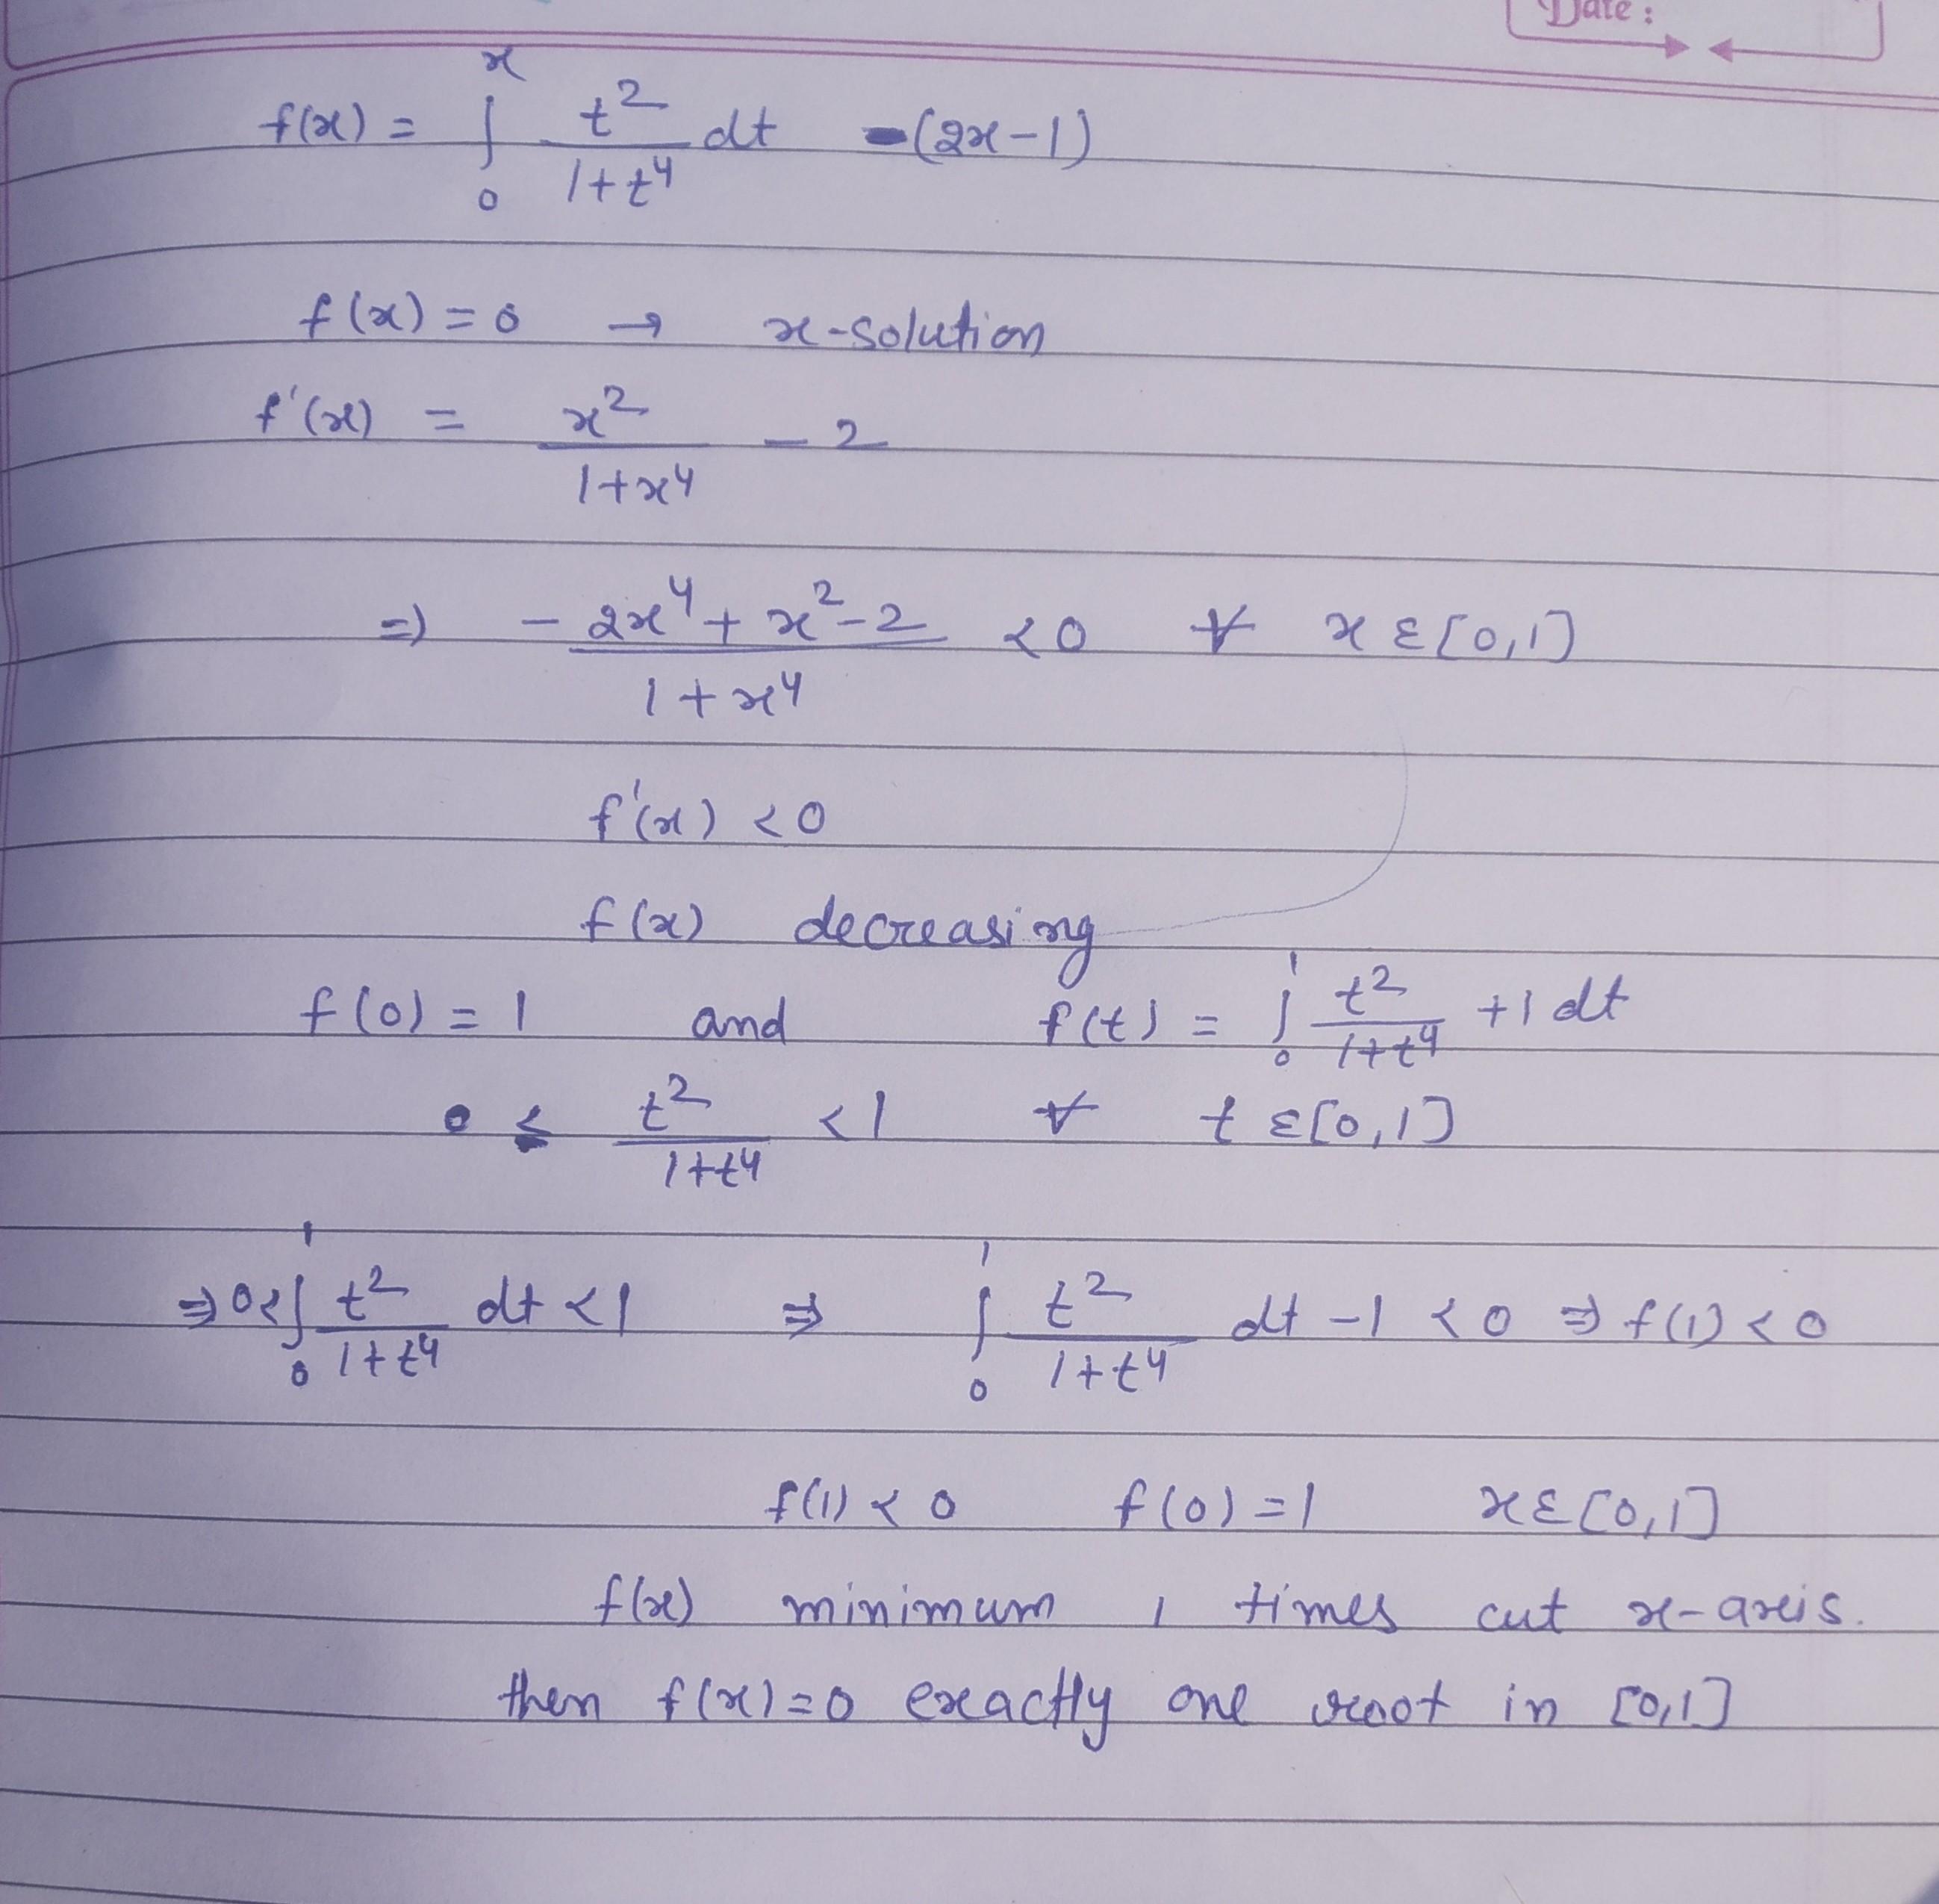 Date :
f(x) = ∫₀ˣ t²/(1+t⁴) dt -(2x-1)
f(x) = 0 → x-solution
f'(x) = x²/(1+x⁴) - 2
⇒ (-2x⁴ + x² - 2)/(1+x⁴) < 0 ∀ x ε [0,1]
f'(x) < 0
f(x) decreasing
f(0) = 1 and f(t) = ∫₀¹ t²/(1+t⁴) + 1 dt
0 ≤ t²/(1+t⁴) < 1 ∀ t ε [0,1]
⇒ 0 < ∫₀¹ t²/(1+t⁴) dt < 1 ⇒ ∫₀¹ t²/(1+t⁴) dt - 1 < 0 ⇒ f(1) < 0
f(1) < 0 f(0) = 1 x ε [0,1]
f(x) minimum 1 times cut x-axis.
then f(x)=0 exactly one root in [0,1]